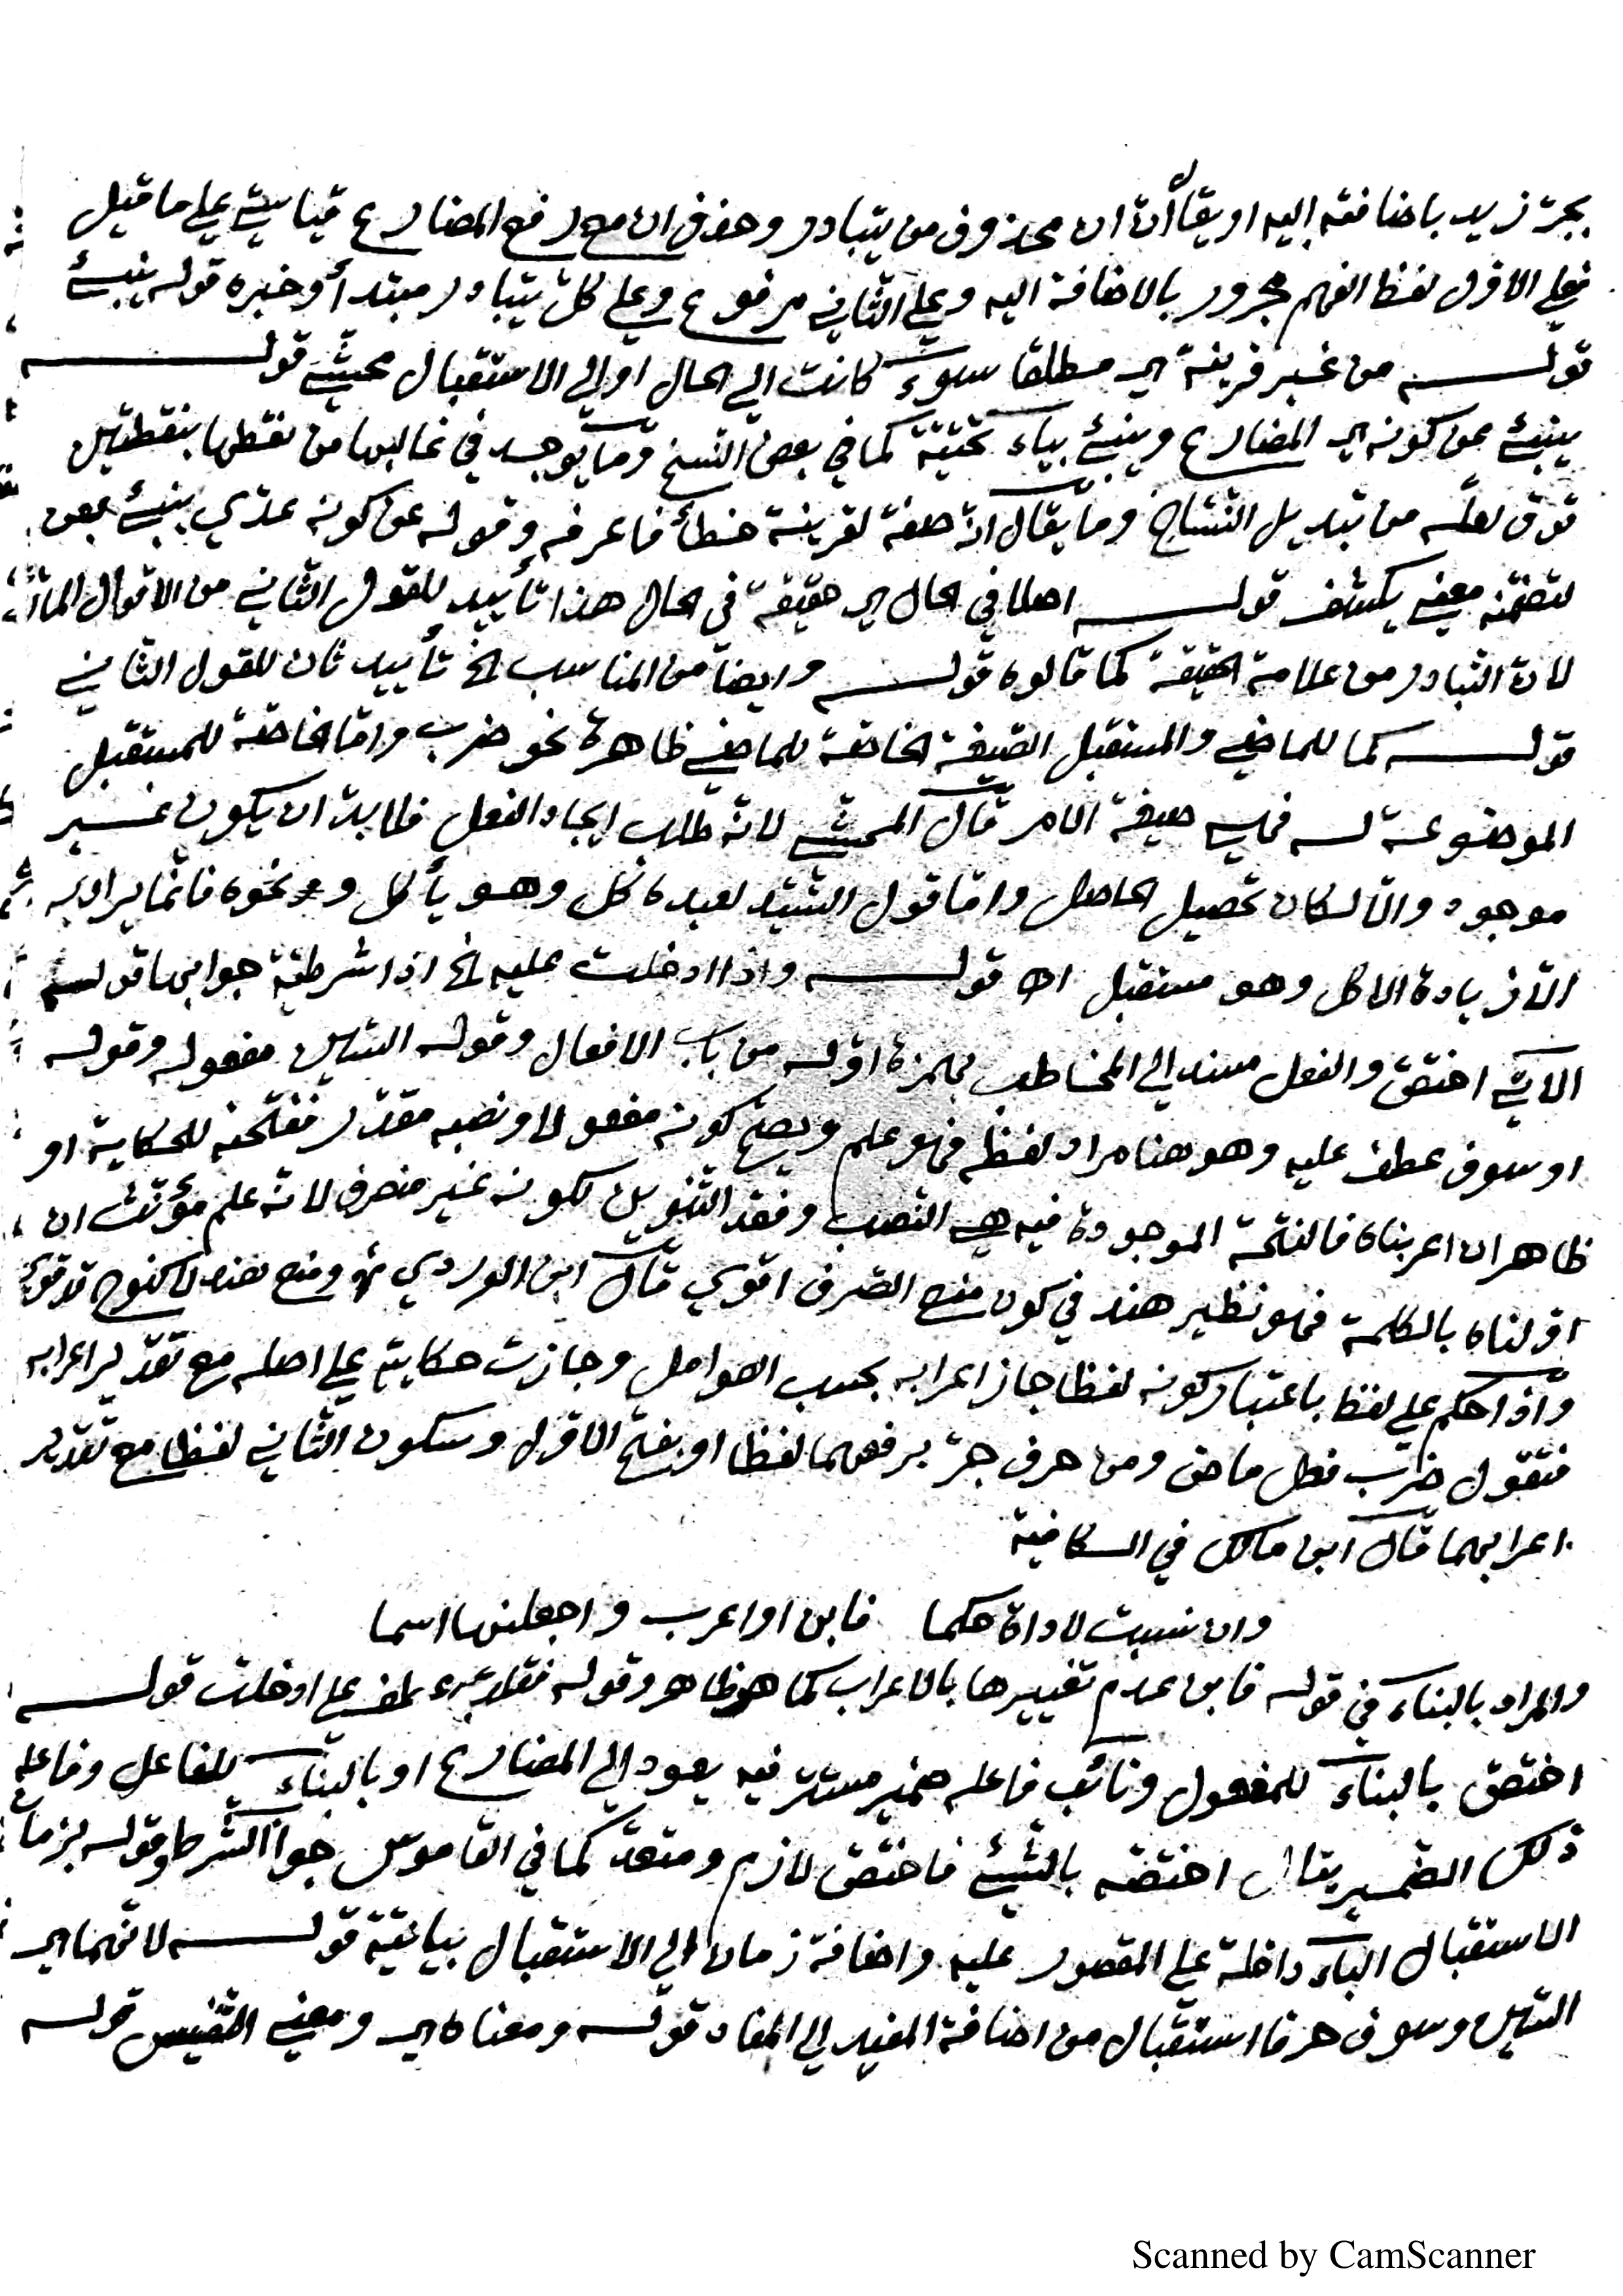 بجرّ زيد باضافته اليه او يقال أنّ ان محذوف من يتبادر وحذف ان مع رفع المضارع قياسيّ على ما قيل
فعلى الاوّل لفظ الفهم مجرور بالاضافة اليه وعلى الثاني مرفوع وعلى كلّ يتبادر مبتدأ وخبره قوله ينبئ
قولــه من غير قرينة اي مطلقا سوءٌ كانت الى الحال او الى الاستقبال محشّي قولــه
ينبئ عن كونه اي المضارع وينبئ بياء تحتيّة كما في بعض النسخ وما يوجد في غالبها من نقطها بنقطتين
فوق لعلّه من تبديل النسّاخ وما يقال انّه صفة لقرينة خطأ فاعرفه وقوله عن كونه عدّي ينبئ بعن
لتضمّنه معنى يكشف قولــه اصلا في الحال اي حقيقة في الحال هذا تأييد للقول الثاني من الاقوال المارّة
لانّ التبادر من علامة الحقيقة كما قالوه قولــه وايضا من المناسب الخ تأييد ثان للقول الثاني
قولــه كما للماضي والمستقبل الصّيغة الخاصّة للماضي ظاهرة نحو ضرب وامّا الخاصّة للمستقبل
الموضوعة له فهي صيغة الامر قال المحشّي لانّه طلب ايجاد الفعل فلا بدّ ان يكون غير
موجود والّا لكان تحصيل الحاصل وامّا قول السّيّد لعبده كل وهو يأكل ونحوه فانّما يراد به
الّا زيادة الاكل وهو مستقبل اه قولــه واذا ادخلت عليه الخ اذا شرطيّة جوابها قوله
الآتي اختصّ والفعل مسند الى المخاطب بهمزة اوّله من باب الافعال وقوله السّين مفعوله وقوله
او سوف عطف عليه وهو هنا مراد لفظه فهو علم ويصحّ كونه مفعولا ونصبه مقدّر ففتحته للحكاية او
ظاهر ان اعربناه فالفتحة الموجودة فيه هي النّصب وفقد التّنوين لكونه غير منصرف لانّه علم مؤنّث ان
اوّلناه بالكلمة فهو نظير هند في كون منع الصّرف اقوى قال ابن الوردي ومنع هند لا كنوح قد قوي
واذا حكم على لفظ باعتبار كونه لفظا جاز اعرابه بحسب العوامل وجازت حكايته على اصله مع تقدير اعرابه
فتقول ضرب فعل ماض ومن حرف جرّ برفعهما لفظا او بفتح الاوّل وسكون الثاني لفظا مع تقدير
اعرابهما قال ابن مالك في الكافية
وان نسبت لاداة حكما فابن او اعرب واجعلنها اسما
والمراد بالبناء في قوله فابن عدم تغييرها بالاعراب كما هو ظاهر وقوله فقلت عطف على ادخلت قولــه
اختصّ بالبناء للمفعول ونائب فاعله ضمير مستتر فيه يعود الى المضارع او بالبناء للفاعل وفاعله
ذلك الضّمير يقال اختصّه بالشّيئ فاختصّ لازم ومتعدّ كما في القاموس جواب الشّرط وقوله بزمان
الاستقبال الباء داخلة على المقصور عليه واضافة زمان الى الاستقبال بيانيّة قولــه لانّهما اي
السّين وسوف حرفا استقبال من اضافة المفيد الى المفاد قولــه ومعناه اي ومعنى التّنفيس قوله
Scanned by CamScanner